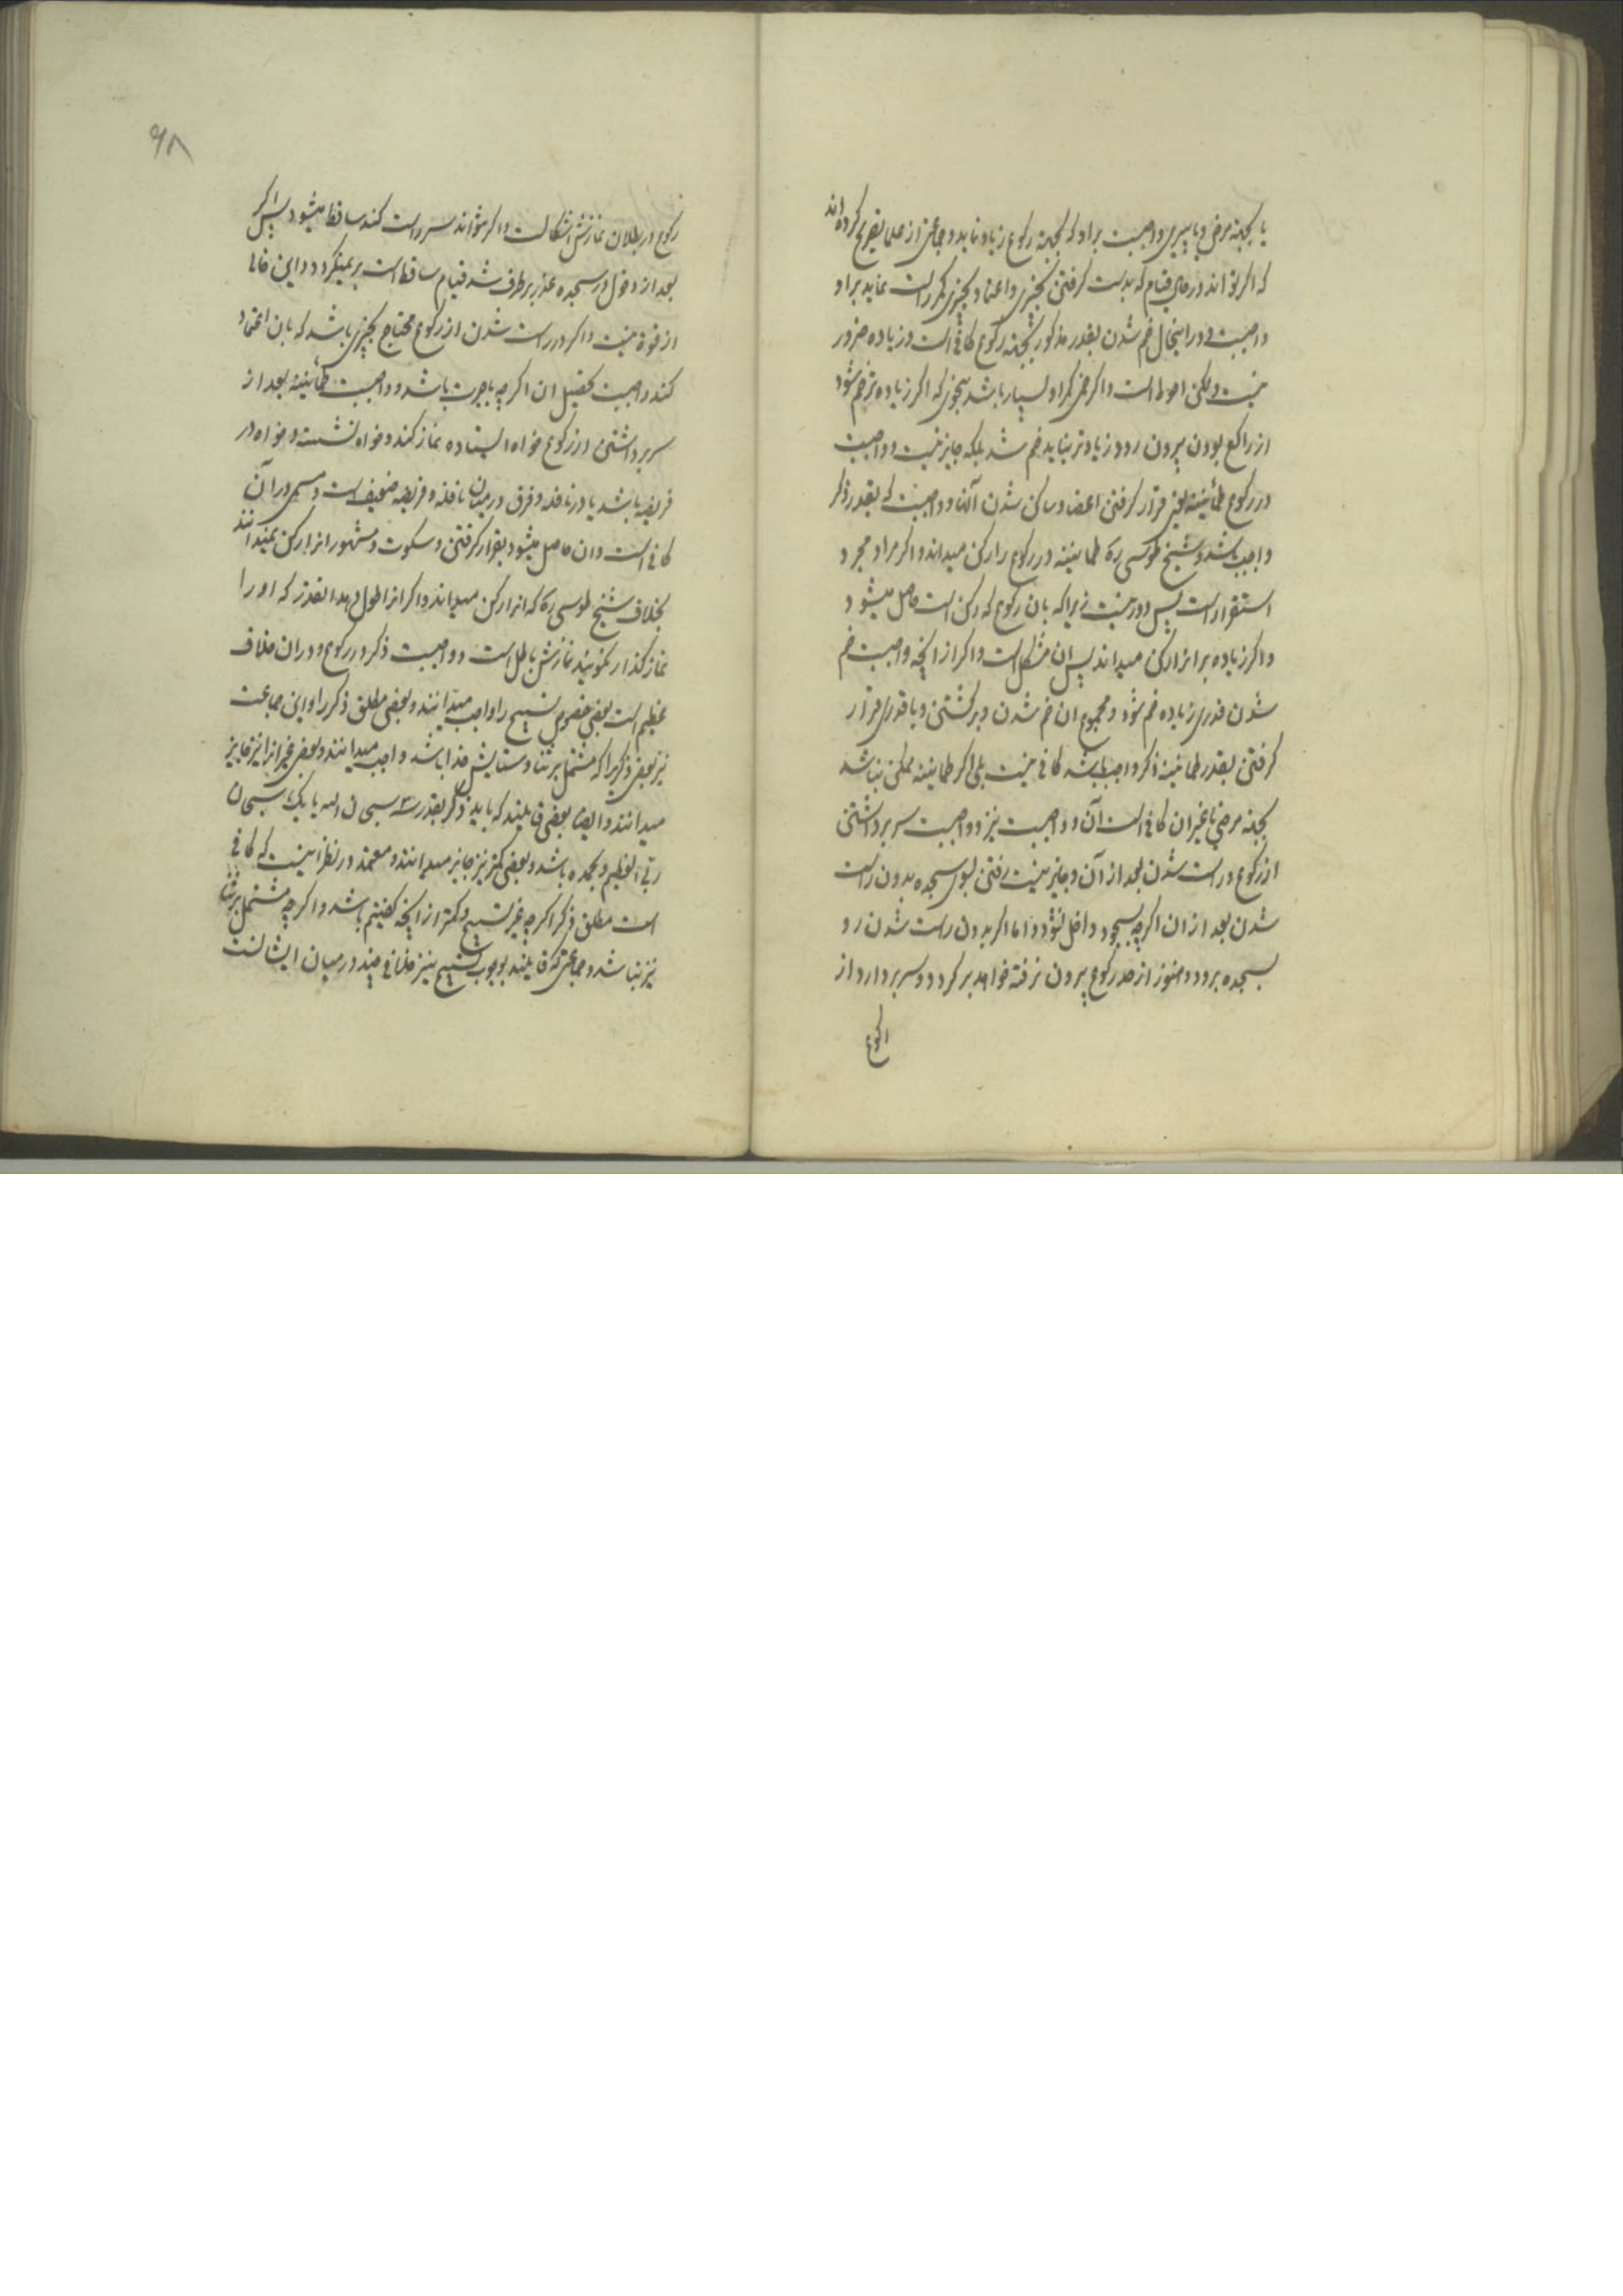 یا بجهة مرض و یا پیری واجبست براو که بجهة رکوع زیاد نماید و جماعتی از علما تصریح کرده‌اند
که اگر تواند در حال قیام که بدست گرفتن بچیزی و اعتماد بچیزی کمر راست نماید براو
واجبست و در اینحال خم شدن بقدر مذکور بجهة رکوع کافی است و زیاده ضرور
نیست ولکن احوط است و اگر خمی کمر او بسیار باشد بنحوی که اگر زیاده‌تر خم شود
از راکع بودن بیرون رود زیادتر نباید خم شد بلکه جایز نیست و واجبست
در رکوع طمأنینه یعنی قرار گرفتن اعضا و ساکن شدن آنها و واجبست که بقدر ذکر
واجب باشد و شیخ طوسی ره طمانینه در رکوع را رکن میداند و اگر مراد مجرد
استقرار است پس دور نیست زیرا که بان رکوع که رکن است حاصل میشود
و اگر زیاده بر انرا رکن میداند پس ان مشکل است و اگر از انچه واجبست خم
شدن قدری زیاده خم شود و مجموع ان خم شدن و برگشتن و با قدری قرار
گرفتن بقدر طمانینه ذکر واجب باشد کافی نیست بلی اگر طمانینه ممکن نباشد
بجهة مرض یا غیر ان کافی است آن و واجبست نیز و واجبست سر برداشتن
از رکوع و راست شدن بعد از آن و جایز نیست رفتن بسوی سجده بدون راست
شدن بعد از ان اگرچه بسجود داخل نشود و اما اگر بدون راست شدن رو
بسجده برود و هنوز از حد رکوع بیرون نرفته خواهد برگردد و سر بردارد از
رکوع
۹۸
رکوع در بطلان نمازش اشکالست و اگر نتواند سر راست کند ساقط میشود پس اگر
بعد از دخول در سجده عذر برطرف شد قیام ساقط است بر نمیگردد و این خالی
از قوة نیست و اگر در راست شدن از رکوع محتاج بچیزی باشد که بان اعتماد
کند واجبست تحصیل ان اگرچه باجرت باشد و واجبست طمأنینه بعد از
سر برداشتن از رکوع خواه ایستاده نماز کند و خواه نشسته و خواه در
فریضه باشد یا در نافله و فرق در میان نافله و فریضه ضعیف است و مسمی در آن
کافی است و ان حاصل میشود بقرار گرفتن و سکوت و مشهور انرا رکن نمیدانند
بخلاف شیخ طوسی ره که انرا رکن میداند و اگر انرا طول دهد انقدر که او را
نماز گذار نگویند نمازش باطل است و واجبست ذکر در رکوع و در ان خلاف
عظیم است بعضی خصوص تسبیح را واجب میدانند و بعضی مطلق ذکر را و این جماعت
نیز بعضی ذکریرا که مشتمل بر ثنا و ستایش خدا باشد واجب میدانند و بعضی غیر انرا نیز جایز
میدانند و ایضا بعضی قایلند که باید ذکر بقدر سه سبحان الله یا یک سبحان
ربی العظیم و بحمده باشد و بعضی کمتر نیز جایز میدانند و معتمد در نظر اینست که کافی
است مطلق ذکر اگرچه غیر تسبیح و کمتر از انچه گفتیم باشد و اگرچه مشتمل بر ثنا
نیز نباشد و جماعتی که قایلند بوجوب تسبیح نیز خلافی چند در میان ایشانست